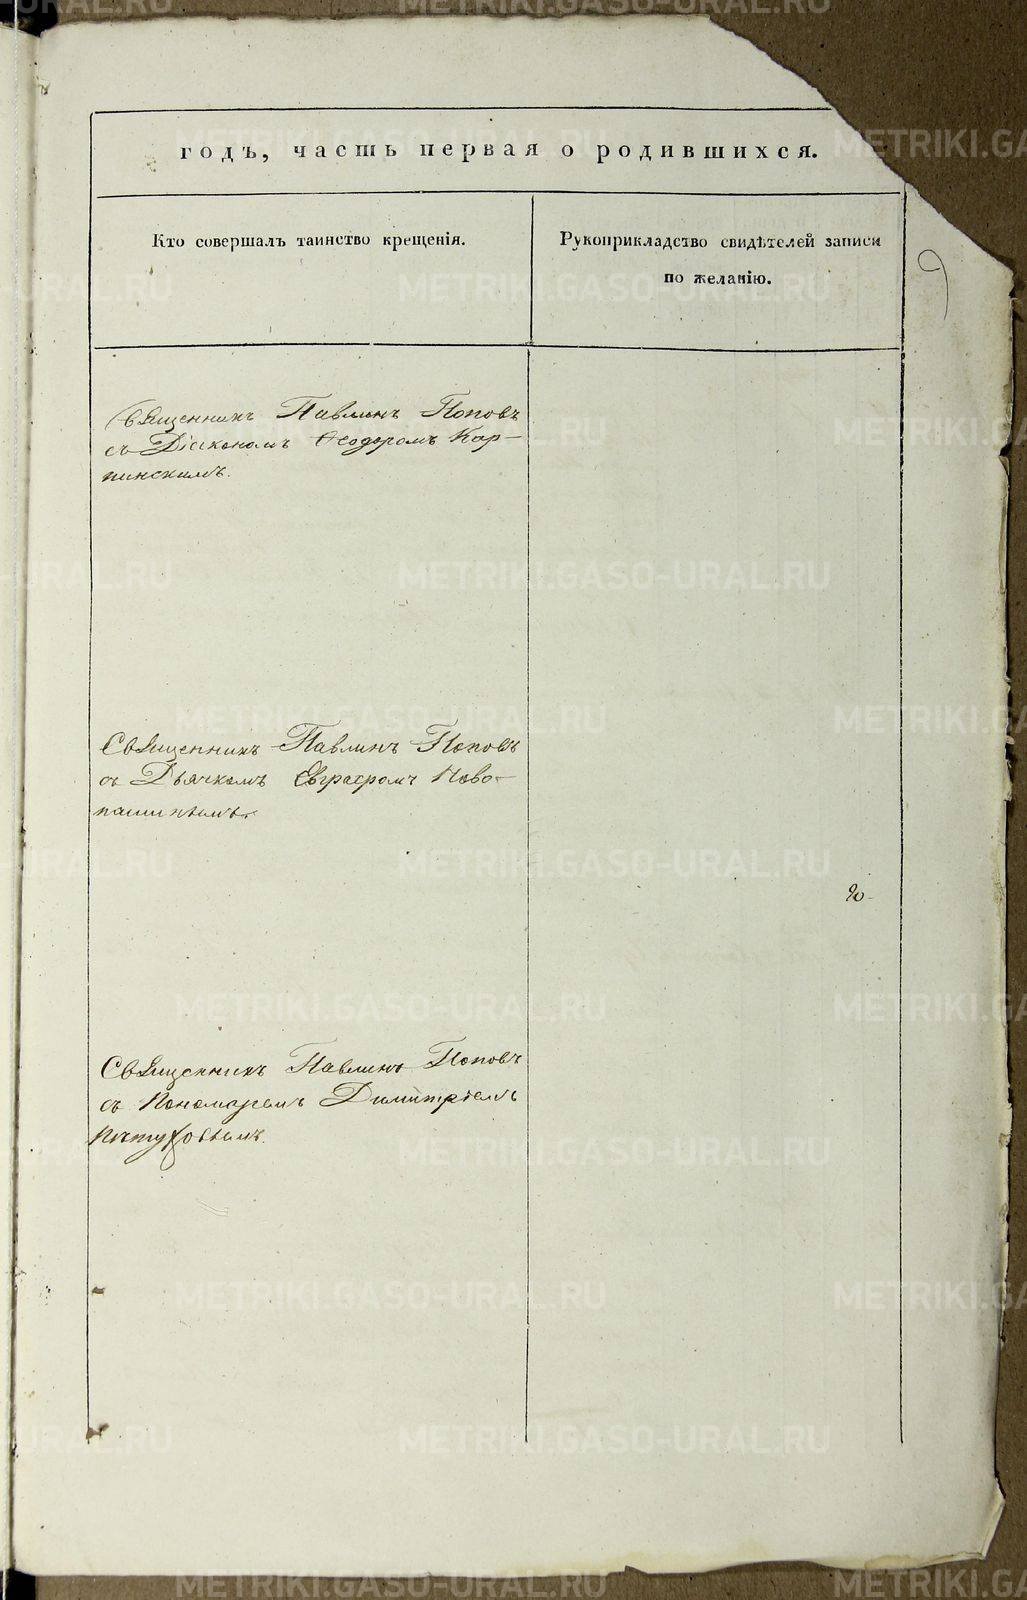 годъ, часть первая о родившихся.
Кто совершалъ таинство крещенія.
Рукоприкладство свидѣтелей записи
по желанію.
9
Священникъ Павлинъ Поповъ
съ Діакономъ Ѳеодоромъ Кар-
пинскимъ.
Священникъ Павлинъ Поповъ
съ Дьячкомъ Евграфомъ Ново-
пашинымъ.
20
Священникъ Павлинъ Поповъ
съ Пономаремъ Димитріемъ
METRIKI.GASO-URAL.RU